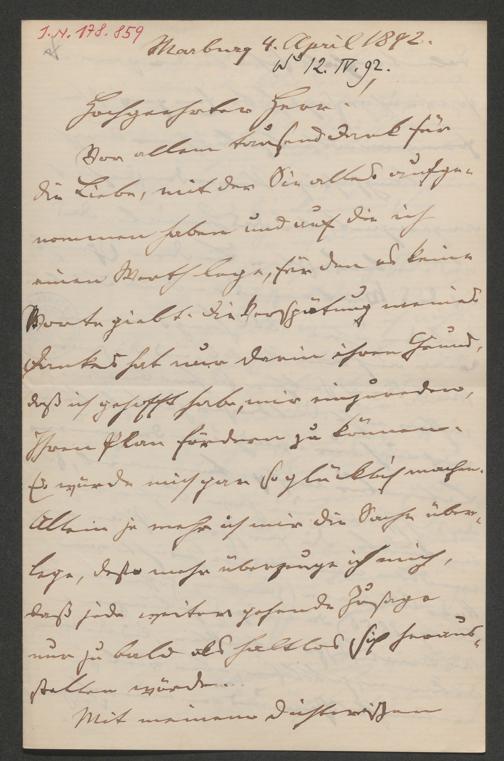 J.N. 178.859
Marburg 4. April 1892.
12. IV. 92.
Hochgeehrter Herr!
Vor allem tausend Dank für
die Liebe, mit der Sie alles aufge-
nommen haben und auf die ich
einen Werth lege, für den es keine
Worte giebt. Die Verspätung meines
Dankes hat nur darin ihren Grund,
daß ich gehofft habe, mir einzureden,
Ihren Plan fördern zu können.
Es würde mich gar so glücklich machen.
Allein je mehr ich mir die Sache über-
lege, desto mehr überzeuge ich mich,
daß jede weiter gehende Zusage
nur zu bald als haltlos sich heraus-
stellen würde.
Mit meinem